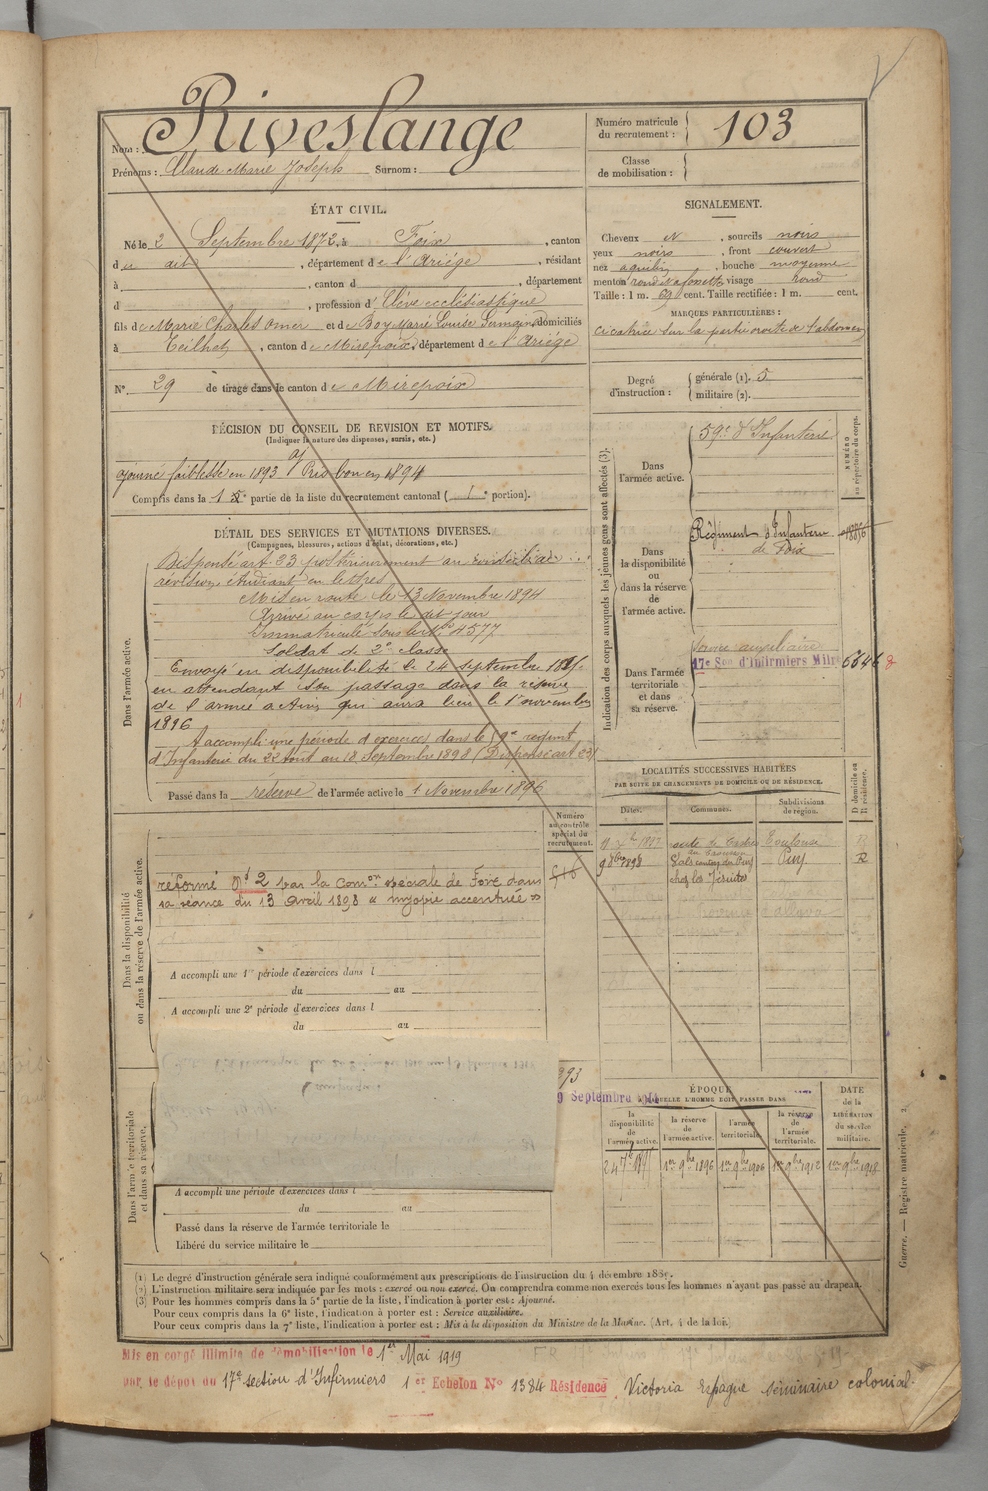 Nom : Riveslange
Prénoms : Claude Marie Joseph Surnom :
Numéro matricule du recrutement : 103
Classe de mobilisation :
ÉTAT CIVIL.
Né le 2 Septembre 1872, à Foix, canton
du dit, département de l'Ariége, résidant
à , canton d , département
d , profession d'Elève ecclésiastique
fils de Marie Charles Omer et de Boy Marie Louise Germaine domiciliés
à Teilhet, canton de Mirepoix, département de l'Ariége
N° 29 de tirage dans le canton de Mirepoix
SIGNALEMENT.
Cheveux N, sourcils noirs
yeux noirs, front couvert
nez aquilin, bouche moyenne
menton rond à fossette visage rond
Taille : 1 m. 69 cent. Taille rectifiée : 1 m. cent.
MARQUES PARTICULIÈRES :
cicatrice sur la partie droite de l'abdomen
Degré d'instruction : générale (1). 5
militaire (2).
DÉCISION DU CONSEIL DE REVISION ET MOTIFS.
(Indiquer la nature des dispenses, sursis, etc.)
ajourné faiblesse en 1893 Pris bon en 1894
Compris dans la 1 e partie de la liste du recrutement cantonal ( 1 e portion).
DÉTAIL DES SERVICES ET MUTATIONS DIVERSES.
(Campagnes, blessures, actions d'éclat, décorations, etc.)
Dans l'armée active.
Dispensé art. 23 postérieurement au
revision, étudiant en lettres
Mis en route le 13 Novembre 1894
Arrivé au corps le dit jour
Immatriculé sous le N° 4577
Soldat de 2e classe
Envoyé en disponibilité le 24 septembre
en attendant son passage dans la réserve
de l'armée active qui aura lieu le 1er novembre
1896
A accompli une période d'exercices dans le 59e régiment
d'Infanterie du 22 Août au 18 Septembre 1898 (Dispensé art 23)
Passé dans la réserve de l'armée active le 1 Novembre 1896
Indication des corps auxquels les jeunes gens sont affectés (3).
NUMÉRO au répertoire du corps.
Dans l'armée active.
59e d'Infanterie
Dans la disponibilité ou dans la réserve de l'armée active.
Régiment d'Infanterie
de Foix
Dans l'armée territoriale et dans sa réserve.
Service auxiliaire
17e Son d'Infirmiers Mil 6646 8
LOCALITÉS SUCCESSIVES HABITÉES
PAR SUITE DE CHANGEMENTS DE DOMICILE OU DE RÉSIDENCE.
Dates. Communes. Subdivisions de région. D domicile ou R résidence.
1897 route de Castres Toulouse R
9 8bre 1898 Vals canton du Puy Puy R
chez les Jésuites
Numéro au contrôle spécial du recrutement.
Dans la disponibilité ou dans la réserve de l'armée active.
réformé N° 2 par la Comon spéciale de Foix dans
sa séance du 13 avril 1898 « myopie accentuée »
A accompli une 1re période d'exercices dans l
du au
A accompli une 2e période d'exercices dans l
du au
Dans l'armée territoriale et dans sa réserve.
A accompli une période d'exercices dans l
du au
Passé dans la réserve de l'armée territoriale le
Libéré du service militaire le
9 Septembre
ÉPOQUE
À LAQUELLE L'HOMME DOIT PASSER DANS
la disponibilité de l'armée active. la réserve de l'armée active. l'armée territoriale. la réserve de l'armée territoriale. DATE de la LIBÉRATION du service militaire.
1er 9bre 1896 1er 9bre 1906 1er 9bre 1912 1er 9bre 1918
Guerre. — Registre matricule. 2.
(1) Le degré d'instruction générale sera indiqué conformément aux prescriptions de l'instruction du 4 décembre 1889.
(2) L'instruction militaire sera indiquée par les mots : exercé ou non exercé. On comprendra comme non exercés tous les hommes n'ayant pas passé au drapeau.
(3) Pour les hommes compris dans la 5e partie de la liste, l'indication à porter est : Ajourné.
Pour ceux compris dans la 6e liste, l'indication à porter est : Service auxiliaire.
Pour ceux compris dans la 7e liste, l'indication à porter est : Mis à la disposition du Ministre de la Marine. (Art. 4 de la loi.)
Mis en congé illimité de démobilisation le 1er Mai 1919
par le dépôt du 17e section d'Infirmiers 1er Echelon N° 1384 Résidence Victoria Espagne séminaire colonial.